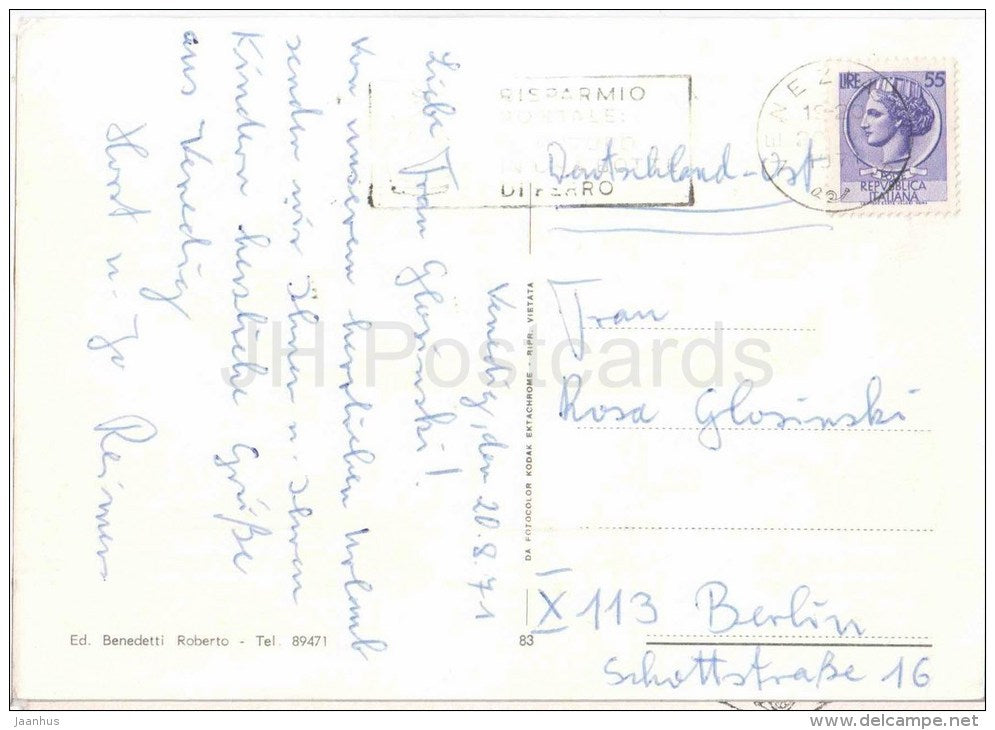 Venedig, den 20.8.71
Liebe Frau Glosinski!
Von unserem herrlichen Urlaub
senden wir Ihnen u. Ihren
Kindern herzliche Grüße
aus Venedig
Horst u. Reimer
RISPARMIO
DI FERRO
LIRE 55
REPVBBLICA
ITALIANA
Deutschland-Ost
Frau
Rosa Glosinski
X 113 Berlin
Schottstraße 16
DA FOTOCOLOR KODAK EKTACHROME - RIPR. VIETATA
Ed. Benedetti Roberto - Tel. 89471
83
JH Postcards
© Jaanhus
www.delcampe.net